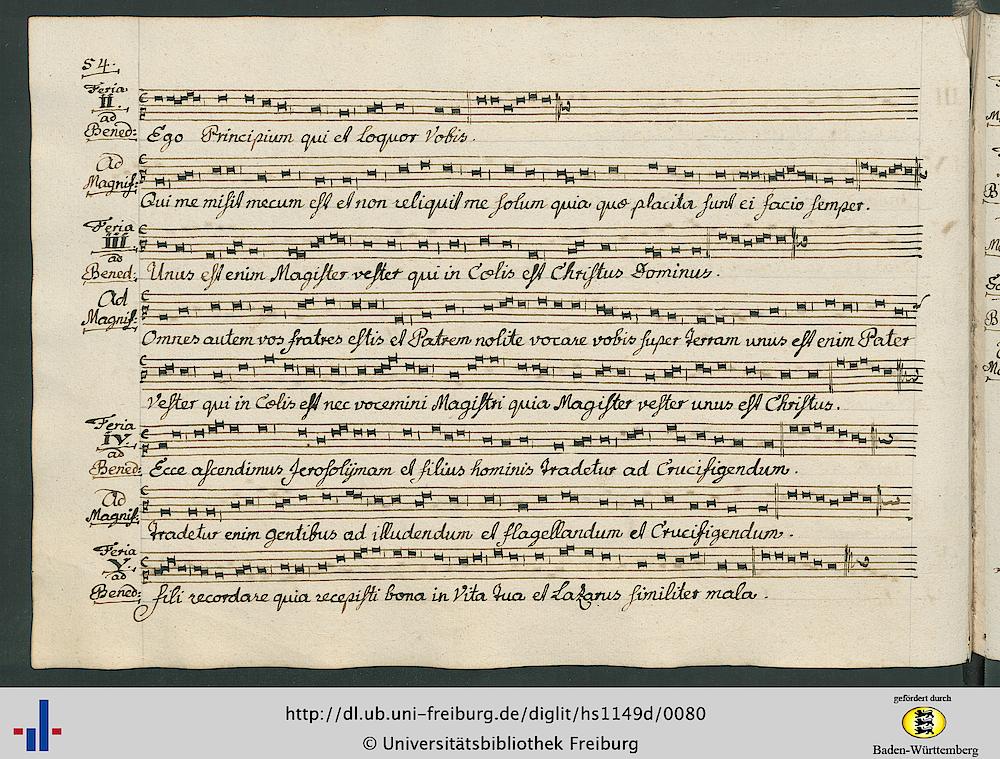 54.
Feria II. ad Bened:
Ego Principium qui et loquor Vobis.
Ad Magnif:
Qui me misit mecum est et non reliquit me solum quia quæ placita sunt ei facio semper.
Feria III ad Bened:
Unus est enim Magister vester qui in Cœlis est Christus Dominus.
Ad Magnif:
Omnes autem vos fratres estis et Patrem nolite vocare vobis super terram unus est enim Pater
Vester qui in Cœlis est nec vocemini Magistri quia Magister vester unus est Christus.
Feria IV ad Bened:
Ecce ascendimus Jerosolijmam et filius hominis tradetur ad Crucifigendum.
Ad Magnif:
tradetur enim gentibus ad illudendum et flagellandum et Crucifigendum.
Feria V. ad Bened:
fili recordare quia recepisti bona in Vita tua et Lazarus similiter mala.
http://dl.ub.uni-freiburg.de/diglit/hs1149d/0080
© Universitätsbibliothek Freiburg
gefördert durch
Baden-Württemberg